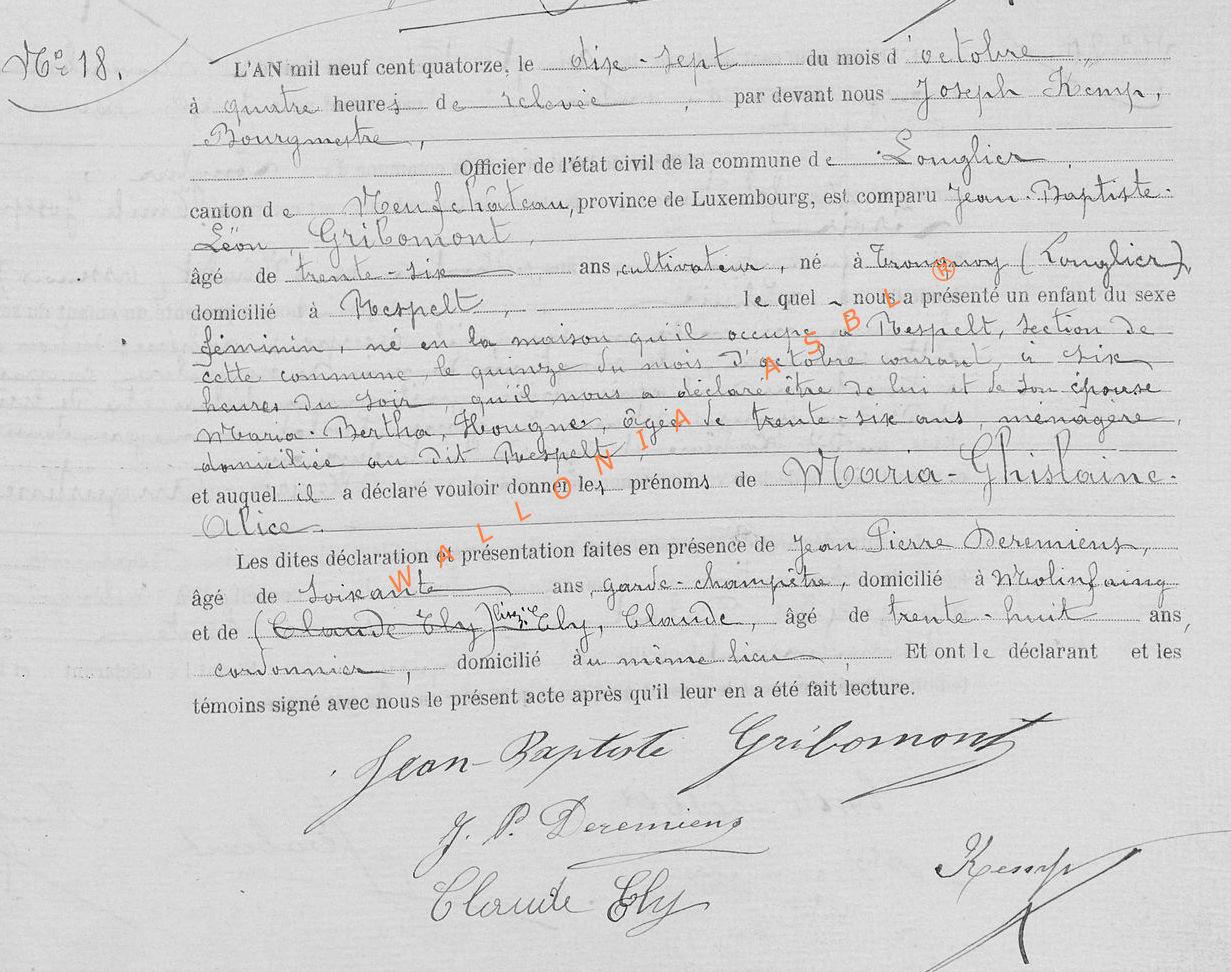 Nº 18.
L'AN mil neuf cent quatorze, le dix-sept du mois d'octobre
à quatre heures de relevée, par devant nous Joseph Kemp,
Bourgmestre,
Officier de l'état civil de la commune de Longlier,
canton de Neufchâteau, province de Luxembourg, est comparu Jean-Baptiste-
Léon Gribomont,
âgé de trente-six ans, cultivateur, né à Tronquoy (Longlier),
domicilié à Respelt, lequel nous a présenté un enfant du sexe
féminin, né en la maison qu'il occupe à Respelt, section de
cette commune, le quinze du mois d'octobre courant, à six
heures du soir, qu'il nous a déclaré être de lui et de son épouse
Maria-Bertha, Hougne, âgée de trente-six ans, ménagère,
domiciliée au dit Respelt,
et auquel il a déclaré vouloir donner les prénoms de Maria-Ghislaine-
Alice.
Les dites déclaration et présentation faites en présence de Jean Pierre Deremiens,
âgé de soixante ans, garde-champêtre, domicilié à Molinfaing
et de (Claude Ely) lisez: Ely, Claude, âgé de trente-huit ans,
cordonnier, domicilié au même lieu, Et ont le déclarant et les
témoins signé avec nous le présent acte après qu'il leur en a été fait lecture.
Jean-Baptiste Gribomont
J. P. Deremiens
Claude Ely
Kemp
WALLONIA ASBL ®